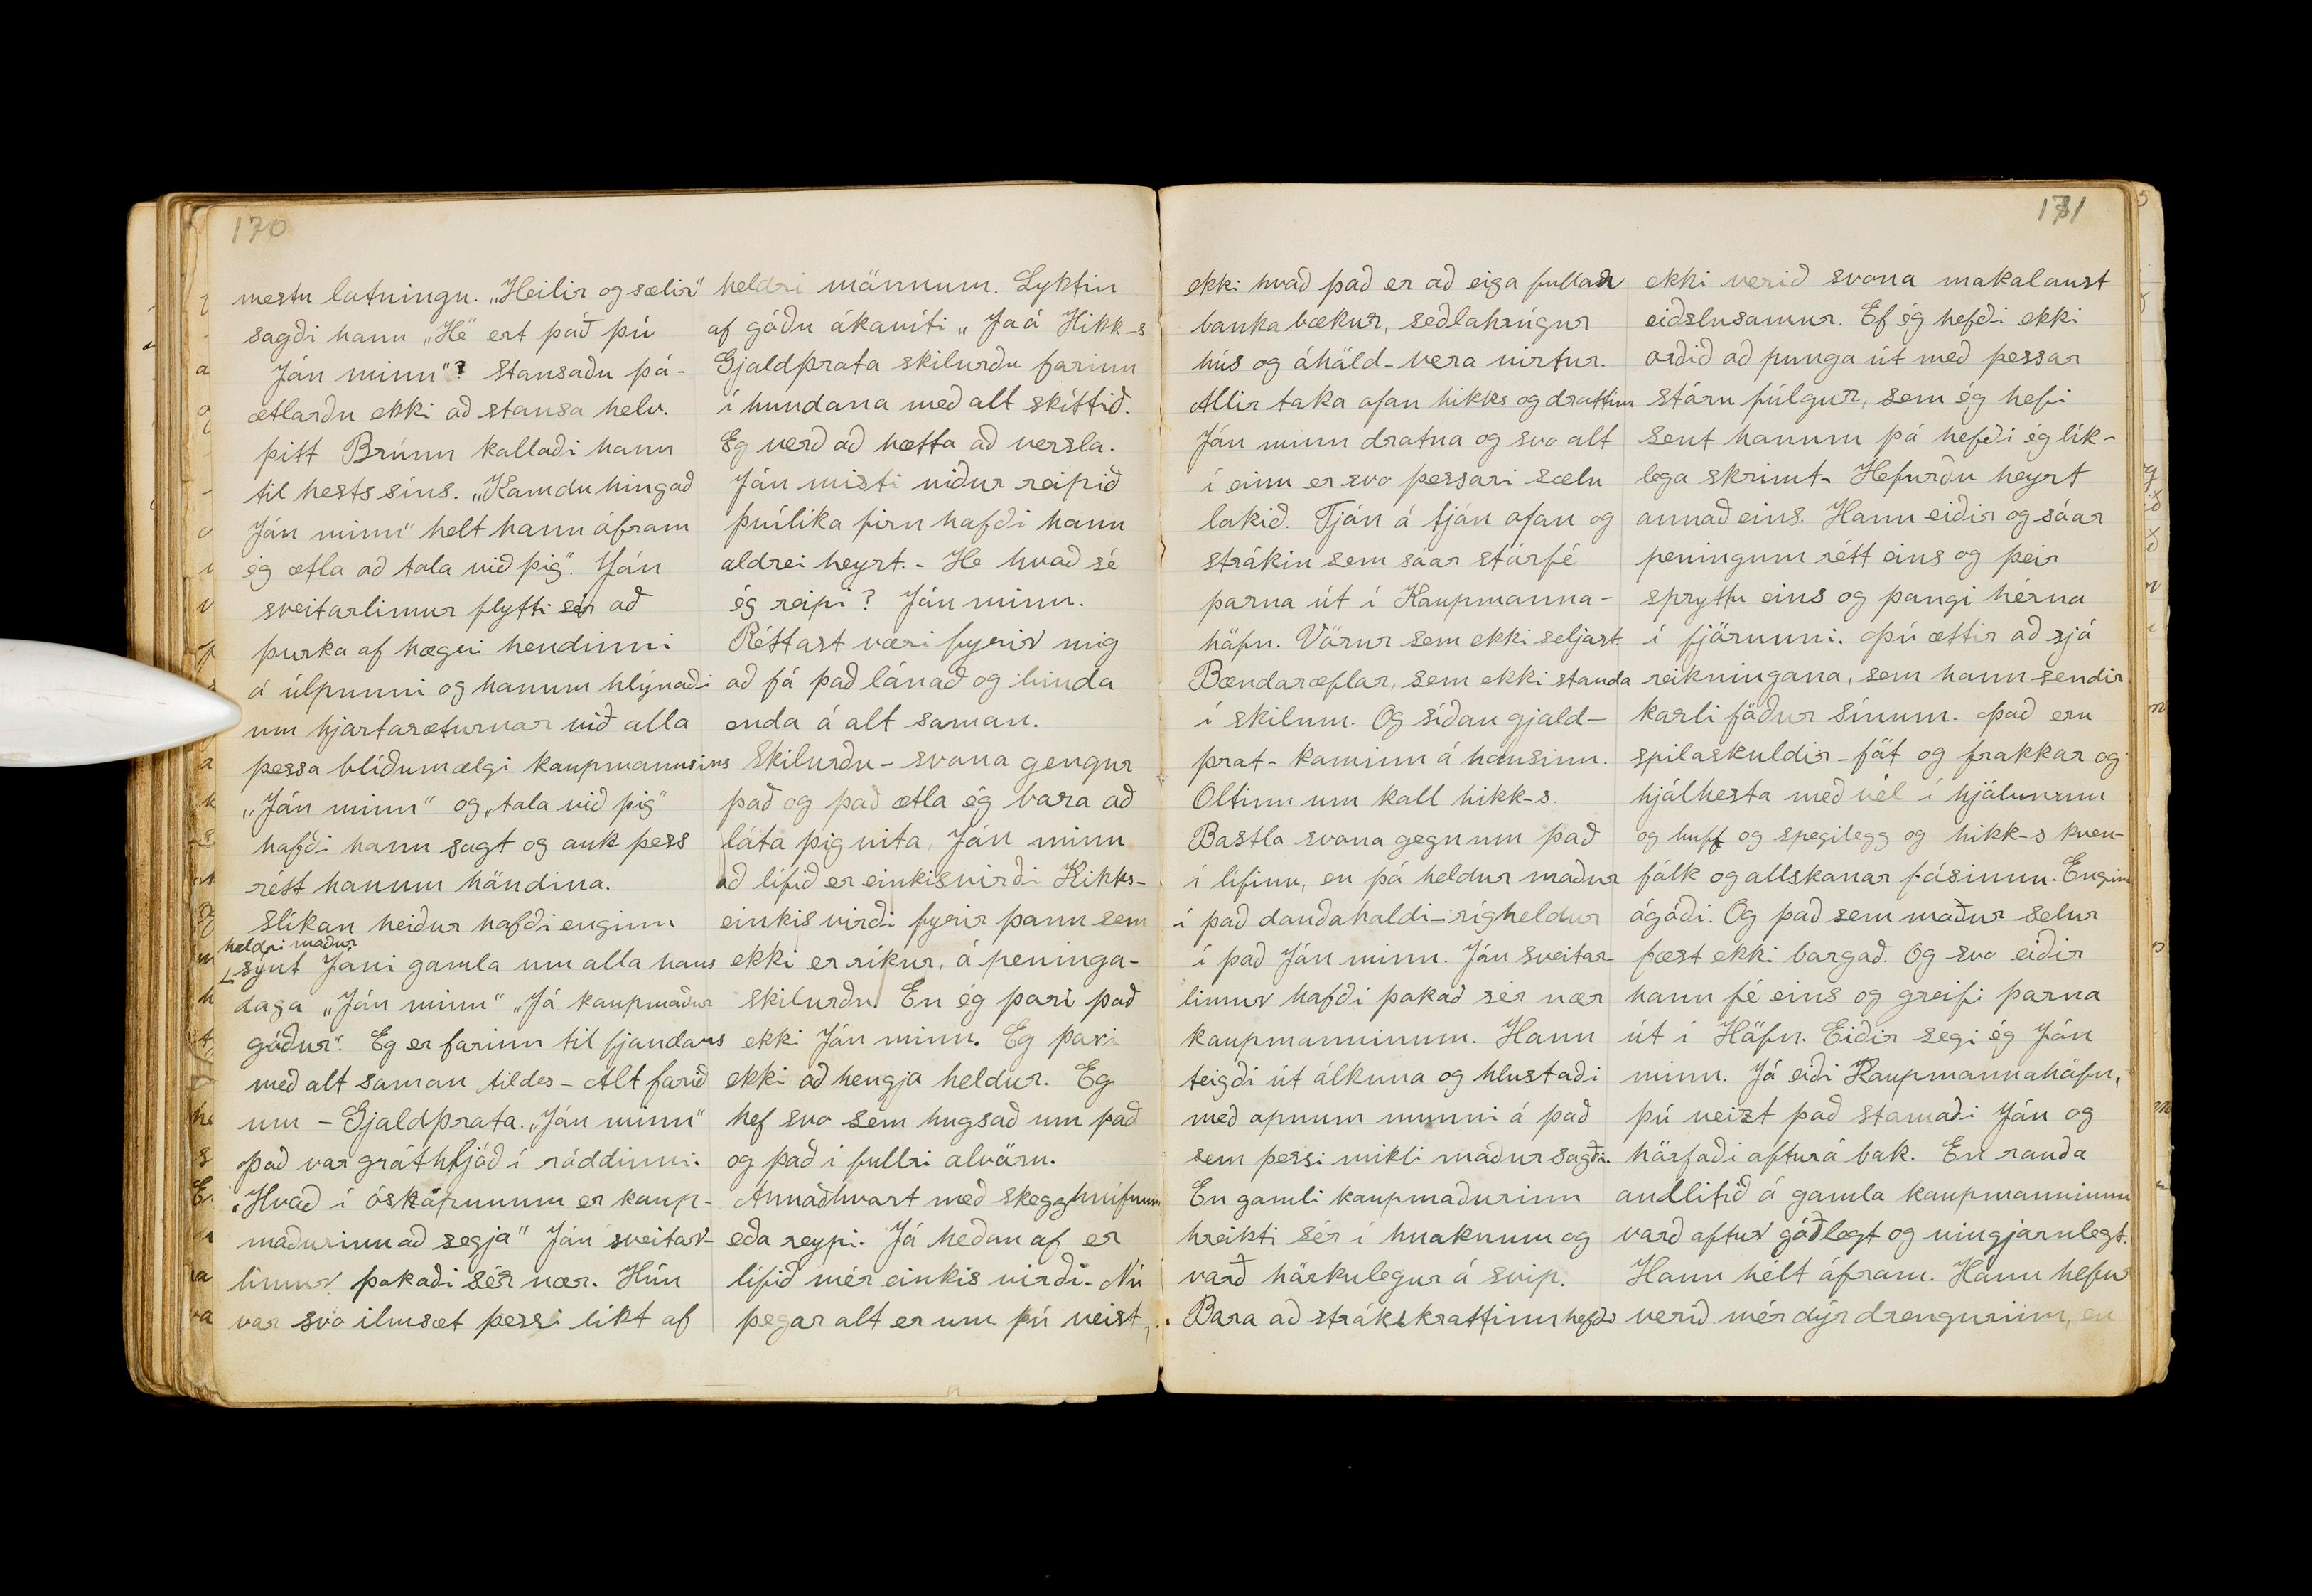 170
mestu lotningu. „Heilir og sælir"
sagði hann „Hé" ert það þú
Ján minn"? Stansaðu þá-
ætlarðu ekki að stansa helv.
þitt Brúnn kallaði hann
til hests síns. „Kamdu hingað
Ján minn" helt hann áfram
ég ætla að tala við þig". Ján
sveitarlimur flytti sér að
þurka af hægri hendinni
á úlpunni og hanum hlýnaði
um hjartaræturnar við alla
þessa blíðumælgi kaupmannsins
„Ján minn" og „tala við þig"
hafði hann sagt og auk þess
rétt hanum händina.
Slíkan heiður hafði enginn
heldri maður
sýnt Jáni gamla um alla hans
daga „Ján minn" „Já kaupmaður
gáður". Eg er farinn til fjandans
með alt saman tildes - Alt farið
um - Gjaldþrata. „Ján minn"
það var gráthljáð í räddinni.
„Hvað í áskäpunum er kaup-
maðurinn að segja" Ján sveitar-
limur þakaði sér nær. Hún
var svo ilmsæt þessi likt af
heldri männum. Lyktin
af gáðu ákavíti „Jaá Hikk-s
Gjaldþrata skilurðu farinn
í hundana með alt skíttið.
Eg verð að hætta að versla.
Ján misti niður reipið
þvílíka firn hafði hann
aldrei heyrt. - He hvað sé
ég reipi? Ján minn.
Réttast væri fyrir mig
að fá það lánað og binda
enda á alt saman.
Skilurðu - svana gengur
það og það ætla ég bara að
láta þig vita, Ján minn
að lífið er einkisvirði Hikks-
einkis virði fyrir þann sem
ekki er ríkur, á peninga-
skilurðu. En ég þari það
ekki Ján minn. Eg þari
ekki að hengja heldur. Eg
hef svo sem hugsað um það
og það í fullri alväru.
Annaðhvart með skegghnífnum
eða reypi. Já heðan af er
lífið mér einkis virði. Nú
þegar alt er um þú veist,.
171
ekki hvað það er að eiga fullar
banka bækur, seðlahrúgur
hús og áhäld - vera virtur.
Allir taka afan hikks og drattinn
Ján minn dratna og svo alt
í einu er svo þessari sælu
lakið. Tján á tján afan og
strákin sem sáar stárfé
þarna út í Kaupmanna-
häfn. Värur sem ekki seljast.
Bændaræflar, sem ekki standa
í skilum. Og síðan gjald-
þrat - kaminn á hausinn.
Oltinn um kall hikk-s.
Bastla svona gegnum það
í lífinu, en þá heldur maður
í það dauðahaldi - rígheldur
í það Ján minn. Ján sveitar-
limur hafði þakað sér nær
kaupmanninum. Hann
teigði út álkuna og hlustaði
með apnum munni á það
sem þessi mikli maður sagði.
En gamli kaupmaðurinn
hreikti sér í hnaknum og
varð härkulegur á svip.
Bara að strákskrattinn hefði
ekki verið svona makalaust
eiðslusamur. Ef ég hefði ekki
orðið að punga út með þessar
stáru fúlgur, sem ég hefi
sent hanum þá hefði ég lík-
lega skrimt. Hefurðu heyrt
annað eins. Hann eiðir og sáar
peningum rétt eins og þeir
spryttu eins og þangi hérna
í fjärunni. Þú ættir að sjá
reikningana, sem hann sendir
karli fäður sínum. Það eru
spilaskuldir - fät og frakkar og
hjálhesta með vél í hjälunum
og huff og spegilegg og hikk-s kven-
fálk og allskanar fásinnu. Enginn
ágáði. Og það sem maður selur
fæst ekki bargað. Og svo eiðir
hann fé eins og greifi þarna
út í Häfn. Eiðir segi ég Ján
minn. Já eiði Kaupmannahäfn,
þú veizt það stamaði Ján og
härfaði aftur á bak. En rauða
andlitið á gamla kaupmanninum
varð aftur gáðlegt og vingjarnlegt.
Hann hélt áfram. Hann hefur
verið mér dýr drengurinn, en